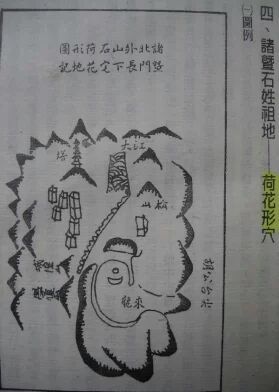 四、諸暨石姓祖地——荷花形穴
㈠圖例
諸暨
北門
外長
山下
石宅
荷花
形地
圖記
塔
大江
松山
來龍